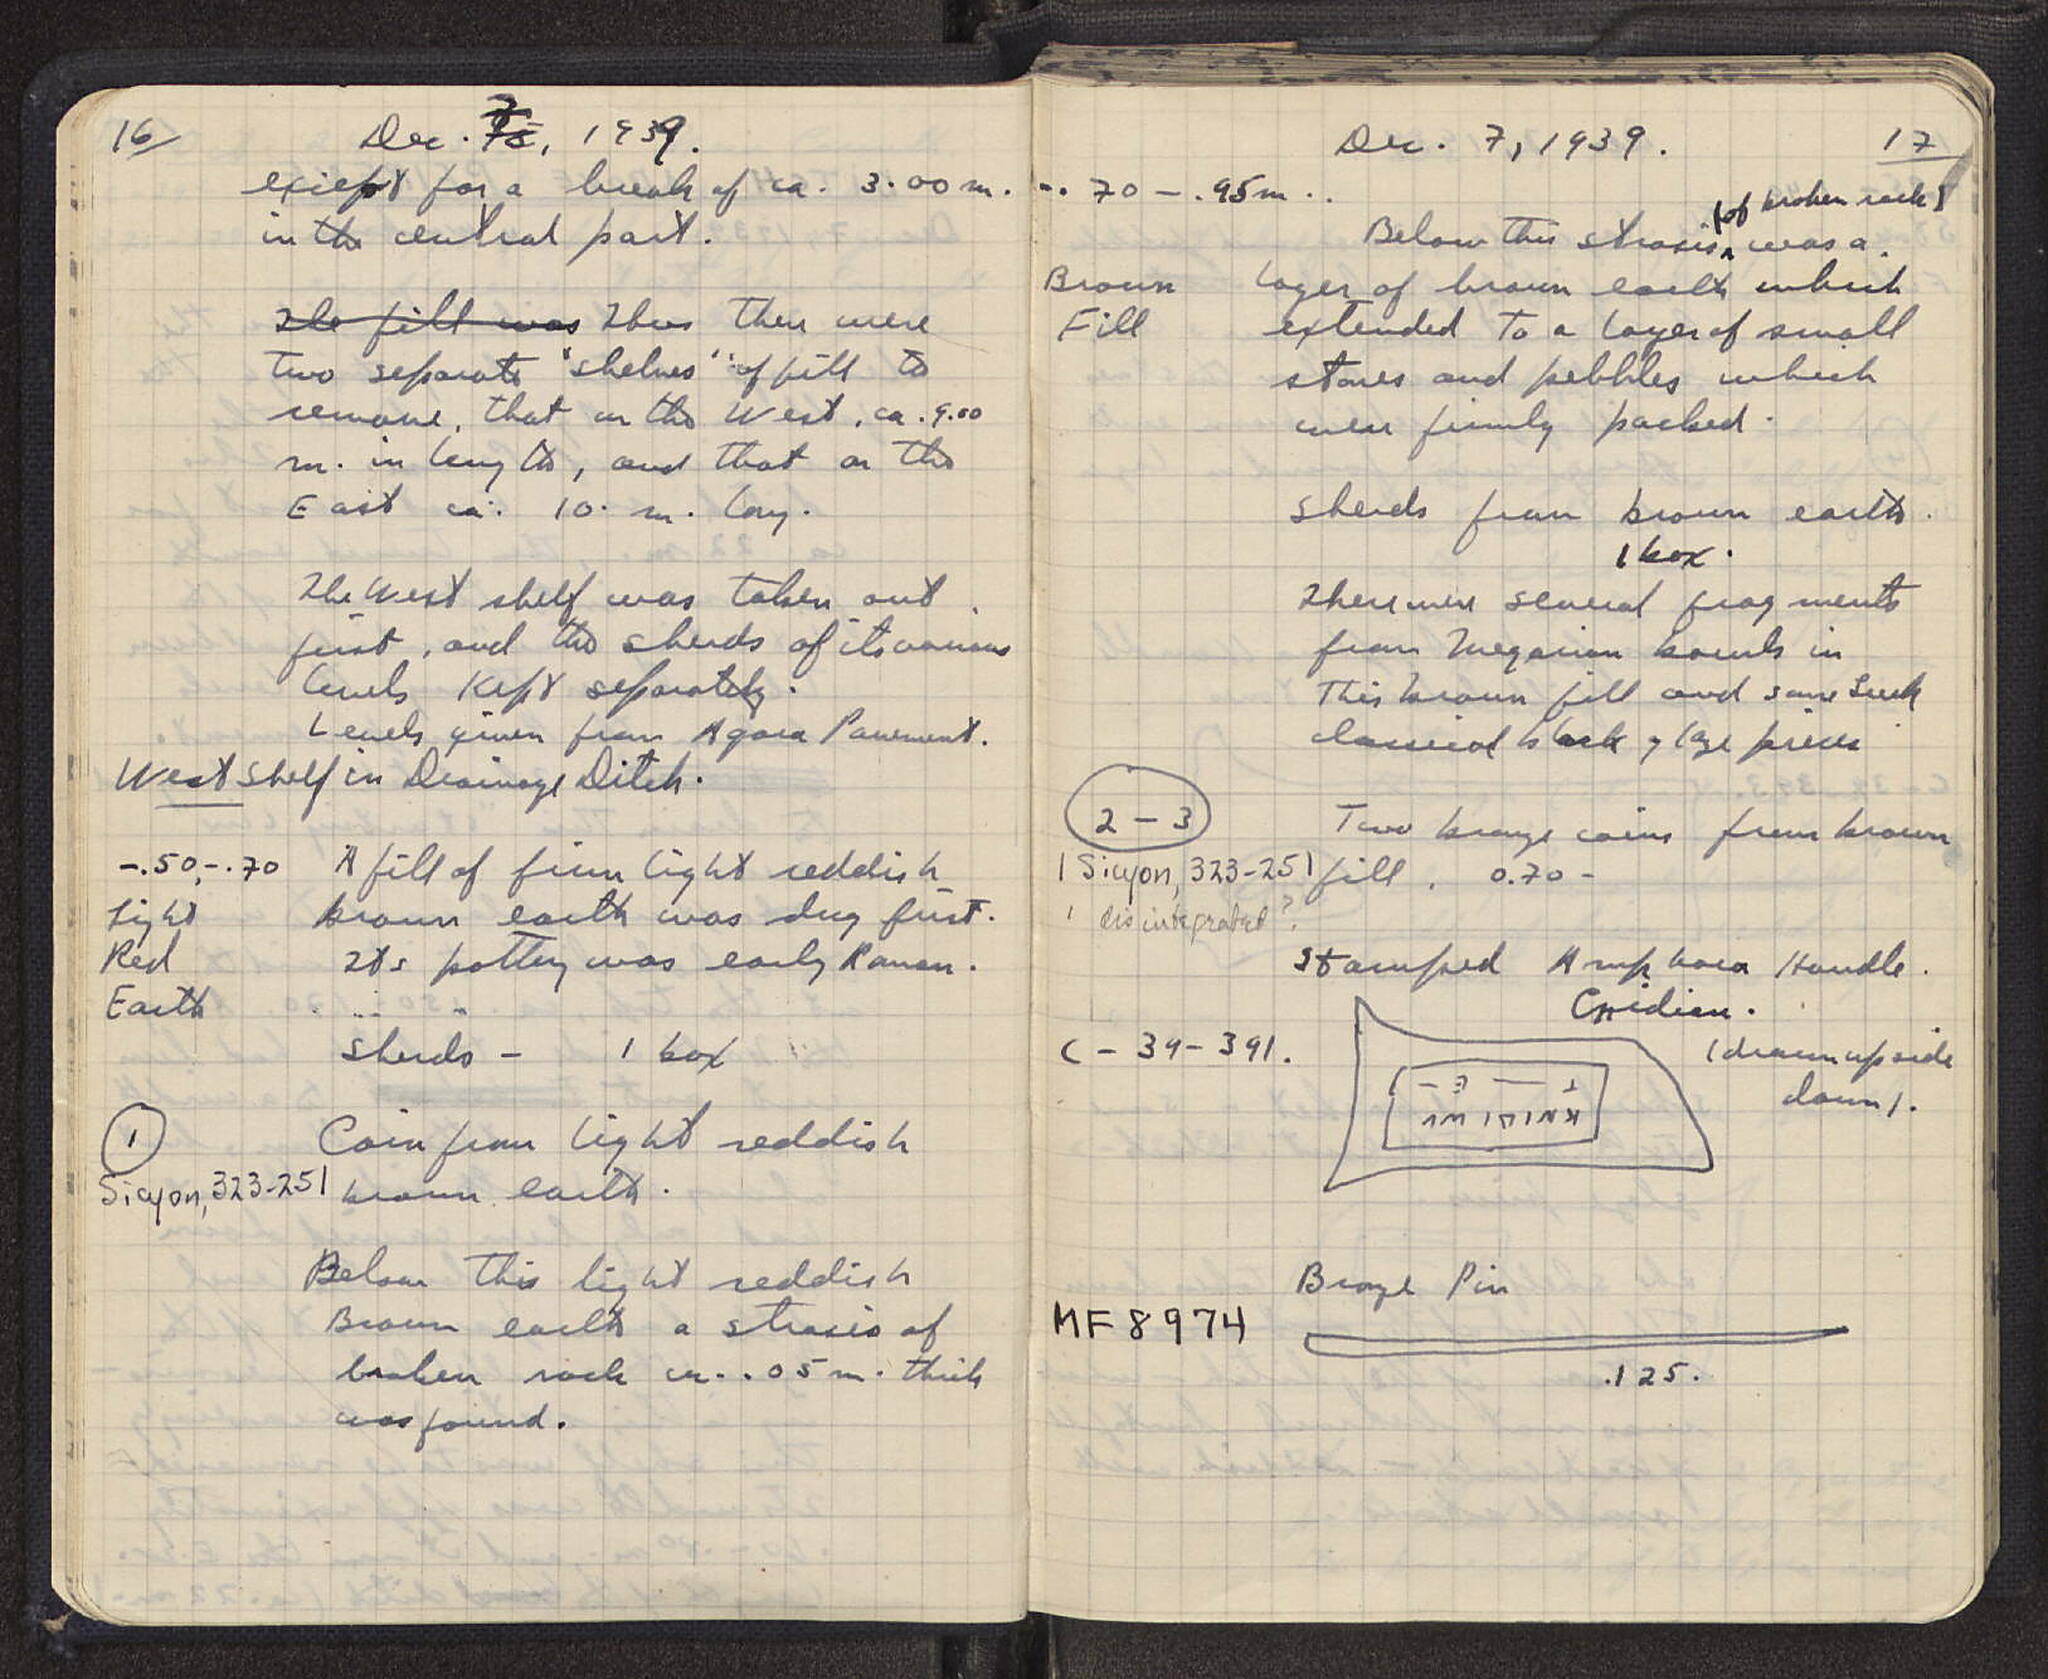 16
Dec. 7, 1939.
except for a break of ca. 3.00 m.
in the central part.
The fill was Thus there were
two separate "shelves" of fill to
remove, that on the West, ca. 9.00
m. in length, and that on the
East ca. 10. m. long.
The West shelf was taken out
first, and the sherds of its various
levels kept separately.
Levels given from Agora Pavement.
West shelf in Drainage Ditch.
-.50,-.70 A fill of firm light reddish
Light brown earth was dug first.
Red Its pottery was early Roman.
Earth
sherds - 1 box
1 Coin from light reddish
Sicyon, 323-251 brown earth.
Below this light reddish
Brown earth a strosis of
broken rock ca. .05 m. thick
was found.
Dec. 7, 1939. 17
-.70 - .95m.
(of broken rock)
Below this strosis was a
Brown layer of brown earth which
Fill extended to a layer of small
stones and pebbles which
were firmly packed.
Sherds from brown earth.
1 box.
There were several fragments
from Megarian bowls in
this brown fill and some Greek
classical black glaze pieces
2 - 3 Two bronze coins from brown
1 Sicyon, 323-251 fill. 0.70 -
1 disintegrated?
Stamped Amphora Handle.
Cnidian.
C - 39 - 391. (drawn upside
down).
Bronze Pin
MF 8974
.125.